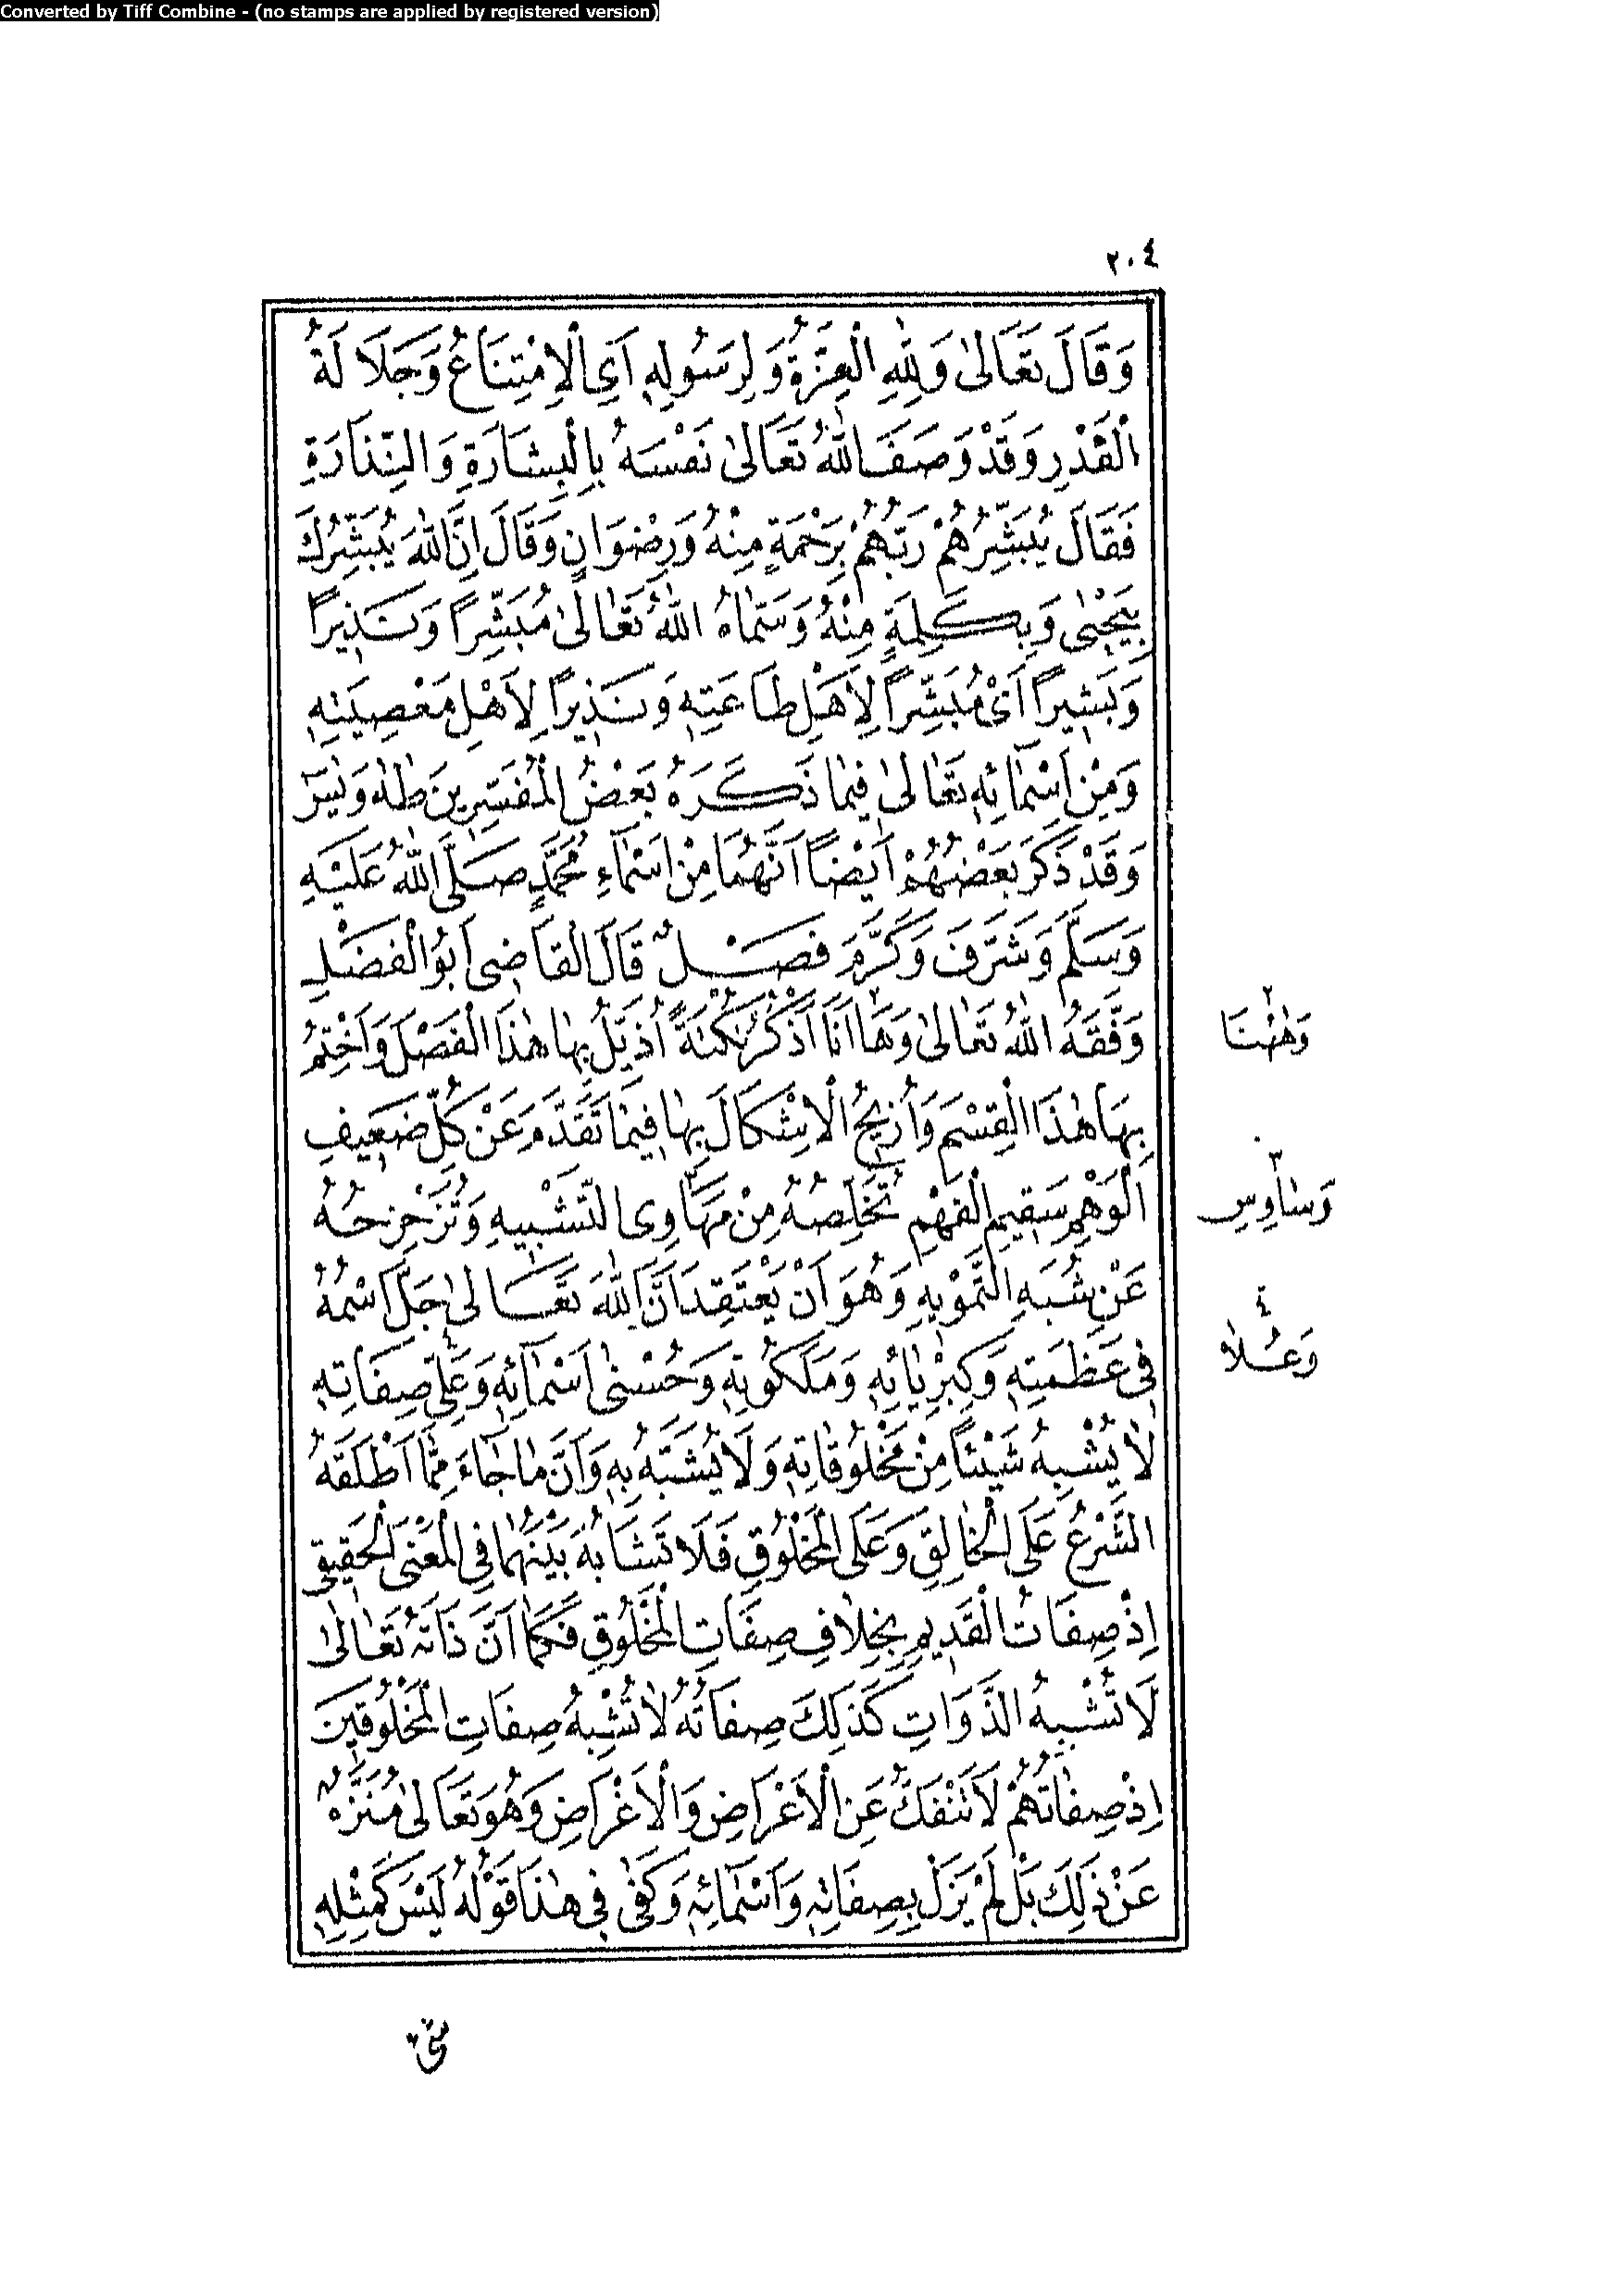 Converted by Tiff Combine - (no stamps are applied by registered version)
٢٠٤
وَقَالَ تَعَالىٰ وَلِلّٰهِ الْعِزَّةُ وَلِرَسُولِهِ اَىِ الْاِمْتِنَاعُ وَجَلَالَةُ
الْقَدْرِ وَقَدْ وَصَفَ اللّٰهُ تَعَالىٰ نَفْسَهُ بِالْبِشَارَةِ وَالنِّذَارَةِ
فَقَالَ يُبَشِّرُهُمْ رَبُّهُمْ بِرَحْمَةٍ مِنْهُ وَرِضْوَانٍ وَقَالَ اِنَّ اللّٰهَ يُبَشِّرُكَ
بِيَحْيٰى وَبِكَلِمَةٍ مِنْهُ وَسَمَّاهُ اللّٰهُ تَعَالىٰ مُبَشِّراً وَنَذِيراً
وَبَشِيراً اَىْ مُبَشِّراً لِاَهْلِ طَاعَتِهِ وَنَذِيراً لِاَهْلِ مَعْصِيَتِهِ
وَمِنْ اَسْمَائِهِ تَعَالىٰ فِيمَا ذَكَرَهُ بَعْضُ الْمُفَسِّرِينَ طٰهٰ وَيٰسٓ
وَقَدْ ذَكَرَ بَعْضُهُمْ اَيْضاً اَنَّهُمَا مِنْ اَسْمَاءِ مُحَمَّدٍ صَلَّى اللّٰهُ عَلَيْهِ
وَسَلَّمَ وَشَرَّفَ وَكَرَّمَ فَصْلٌ قَالَ الْقَاضِى اَبُو الْفَضْلِ
وَفَّقَهُ اللّٰهُ تَعَالىٰ وَهَا اَنَا ٢ اَذْكُرُ نُكْتَةً اُذَيِّلُ بِهَا هٰذَا الْفَصْلَ وَاَخْتِمُ
وَهٰهُنَا ٢
بِهَا هٰذَا الْقِسْمَ وَاُزِيحُ الْاِشْكَالَ بِهَا فِيمَا تَقَدَّمَ عَنْ كُلِّ ضَعِيفِ
الْوَهْمِ سَقِيمِ الْفَهْمِ تُخَلِّصُهُ مِنْ مَهَاوِى ٣ التَّشْبِيهِ وَتُزَحْزِحُهُ
وَسَاوِسِ ٣
عَنْ شُبَهِ التَّمْوِيهِ وَهُوَ اَنْ يَعْتَقِدَ اَنَّ اللّٰهَ تَعَالىٰ جَلَّ اسْمُهُ
فِى عَظَمَتِهِ وَكِبْرِيَائِهِ وَمَلَكُوتِهِ وَحُسْنٰى اَسْمَائِهِ وَعَلِىِّ ٤ صِفَاتِهِ
وَعُلَاهُ ٤
لَا يُشْبِهُ شَيْئاً مِنْ مَخْلُوقَاتِهِ وَلَا يُشَبَّهُ بِهِ وَاَنَّ مَا جَاءَ مِمَّا اَطْلَقَهُ
الشَّرْعُ عَلَى الْخَالِقِ وَعَلَى الْمَخْلُوقِ فَلَا تَشَابُهَ بَيْنَهُمَا فِى الْمَعْنَى الْحَقِيقِى
اِذْ صِفَاتُ الْقَدِيمِ بِخِلَافِ صِفَاتِ الْمَخْلُوقِ فَكَمَا اَنَّ ذَاتَهُ تَعَالىٰ
لَا تُشْبِهُ الذَّوَاتِ كَذٰلِكَ صِفَاتُهُ لَا تُشْبِهُ صِفَاتِ الْمَخْلُوقِينَ
اِذْ صِفَاتُهُمْ لَا تَنْفَكُّ عَنِ الْاَعْرَاضِ وَالْاَغْرَاضِ وَهُوَ تَعَالىٰ مُنَزَّهٌ
عَنْ ذٰلِكَ بَلْ لَمْ يَزَلْ بِصِفَاتِهِ وَاَسْمَائِهِ وَكَفٰى فِى هٰذَا قَوْلُهُ لَيْسَ كَمِثْلِهِ
شَىْءٌ